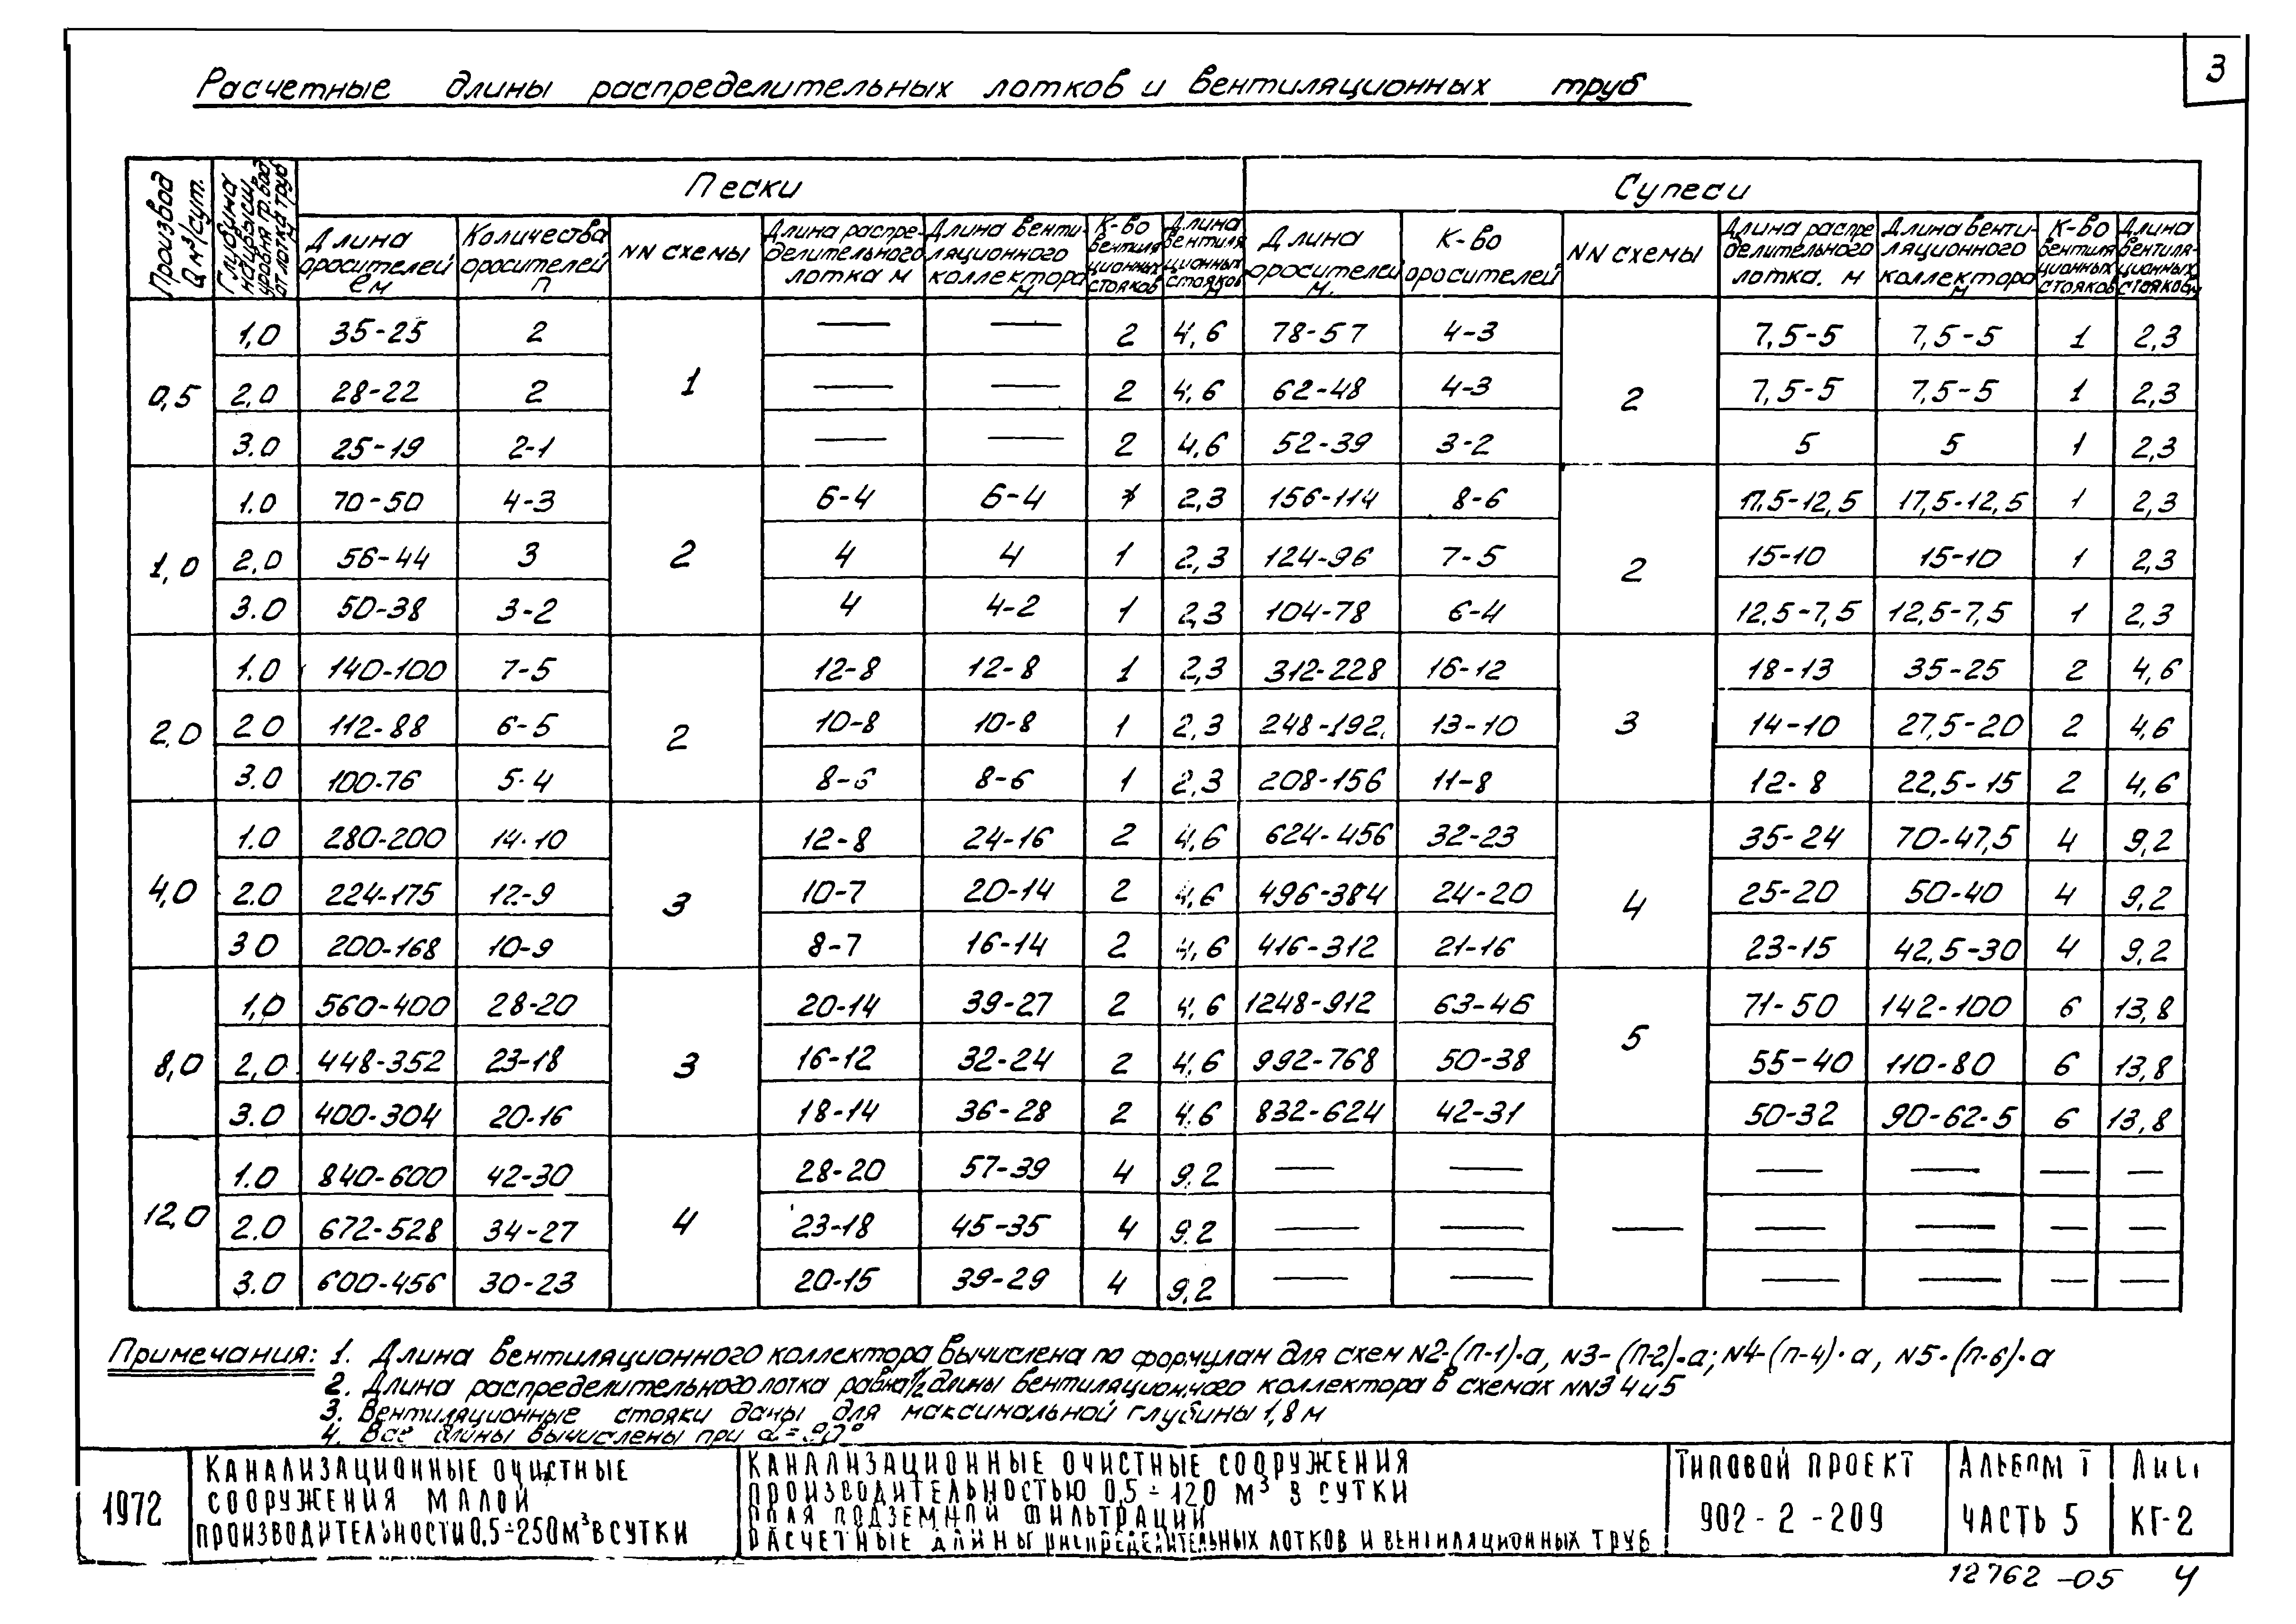 3
Расчетные длины распределительных лотков и вентиляционных труб
Производ. Q м³/сут.
Глубина наивысш. уровня гр. вод от лотка труб м
Пески
Супеси
Длина оросителей ℓ м
Количества оросителей п
NN схемы
Длина распределительного лотка м
Длина вентиляционного коллектора м
К-во вентиляционных стояков
Длина вентиляционных стояков м
Длина оросителей м.
К-во оросителей
NN схемы
Длина распределительного лотка. м
Длина вентиляционного коллектора м
К-во вентиляционных стояков
Длина вентиляционных стояков м
0,5 1,0 35-25 2 1 — — 2 4,6 78-57 4-3 2 7,5-5 7,5-5 1 2,3
2,0 28-22 2 — — 2 4,6 62-48 4-3 7,5-5 7,5-5 1 2,3
3.0 25-19 2-1 — — 2 4,6 52-39 3-2 5 5 1 2,3
1,0 1.0 70-50 4-3 2 6-4 6-4 1 2,3 156-114 8-6 2 17,5-12,5 17,5-12,5 1 2,3
2,0 56-44 3 4 4 1 2,3 124-96 7-5 15-10 15-10 1 2,3
3.0 50-38 3-2 4 4-2 1 2,3 104-78 6-4 12,5-7,5 12,5-7,5 1 2,3
2,0 1.0 140-100 7-5 2 12-8 12-8 1 2,3 312-228 16-12 3 18-13 35-25 2 4,6
2 0 112-88 6-5 10-8 10-8 1 2,3 248-192 13-10 14-10 27,5-20 2 4,6
3.0 100-76 5-4 8-6 8-6 1 2,3 208-156 11-8 12-8 22,5-15 2 4,6
4,0 1.0 280-200 14-10 3 12-8 24-16 2 4,6 624-456 32-23 4 35-24 70-47,5 4 9,2
2.0 224-175 12-9 10-7 20-14 2 4,6 496-384 24-20 25-20 50-40 4 9,2
3 0 200-168 10-9 8-7 16-14 2 4,6 416-312 21-16 23-15 42,5-30 4 9,2
8,0 1,0 560-400 28-20 3 20-14 39-27 2 4,6 1248-912 63-46 5 71-50 142-100 6 13,8
2,0 448-352 23-18 16-12 32-24 2 4,6 992-768 50-38 55-40 110-80 6 13,8
3.0 400-304 20-16 18-14 36-28 2 4,6 832-624 42-31 50-32 90-62-5 6 13,8
12,0 1.0 840-600 42-30 4 28-20 57-39 4 9.2 — — — — — — —
2.0 672-528 34-27 23-18 45-35 4 9.2 — — — — — —
3.0 600-456 30-23 20-15 39-29 4 9,2 — — — — — —
Примечания: 1. Длина вентиляционного коллектора вычислена по формулам для схем N2-(п-1)·a, N3-(п-2)·a; N4-(п-4)·a, N5-(п-6)·a
2. Длина распределительного лотка равна 1/2 длины вентиляционного коллектора в схемах NN3 4 и 5
3. Вентиляционные стояки даны для максимальной глубины 1,8 м
4. Все длины вычислены при α=90°
1972
КАНАЛИЗАЦИОННЫЕ ОЧИСТНЫЕ
СООРУЖЕНИЯ МАЛОЙ
ПРОИЗВОДИТЕЛЬНОСТИ 0,5÷250 М³ В СУТКИ
КАНАЛИЗАЦИОННЫЕ ОЧИСТНЫЕ СООРУЖЕНИЯ
ПРОИЗВОДИТЕЛЬНОСТЬЮ 0,5÷12,0 М³ В СУТКИ
ПОЛЯ ПОДЗЕМНОЙ ФИЛЬТРАЦИИ
РАСЧЕТНЫЕ ДЛИНЫ РАСПРЕДЕЛИТЕЛЬНЫХ ЛОТКОВ И ВЕНТИЛЯЦИОННЫХ ТРУБ
ТИПОВОЙ ПРОЕКТ
902-2-209
АЛЬБОМ I
ЧАСТЬ 5
Лист
КГ-2
12762-05 4